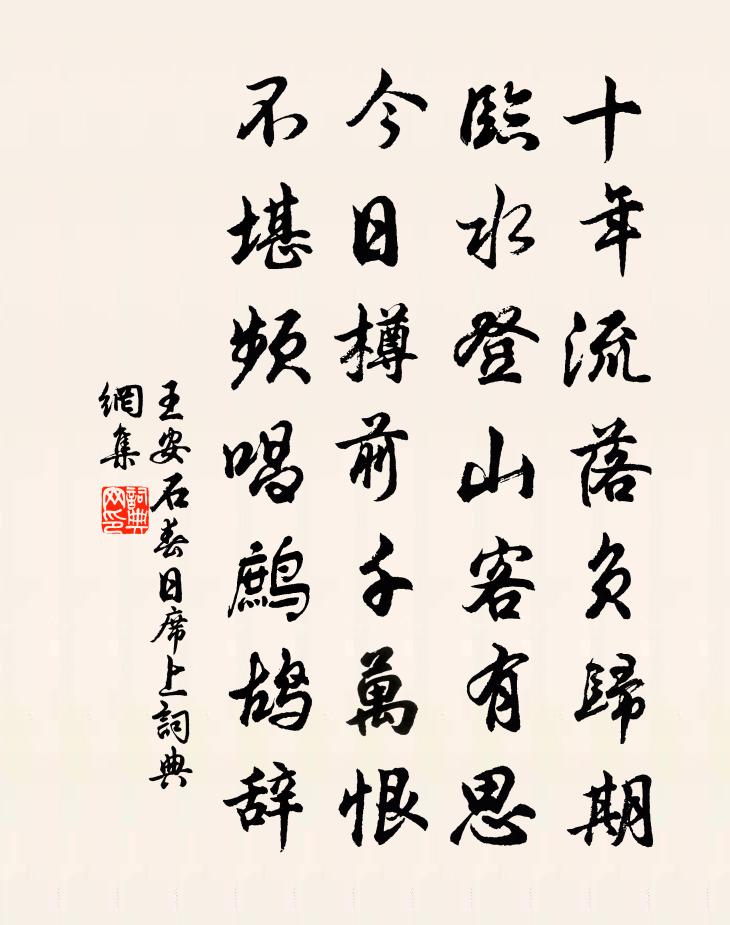 十年流落負歸期
臨水登山客有思
今日樽前千萬恨
不堪頻唱鷓鴣辞
王安石春日席上詞典
網集
詞典
网印